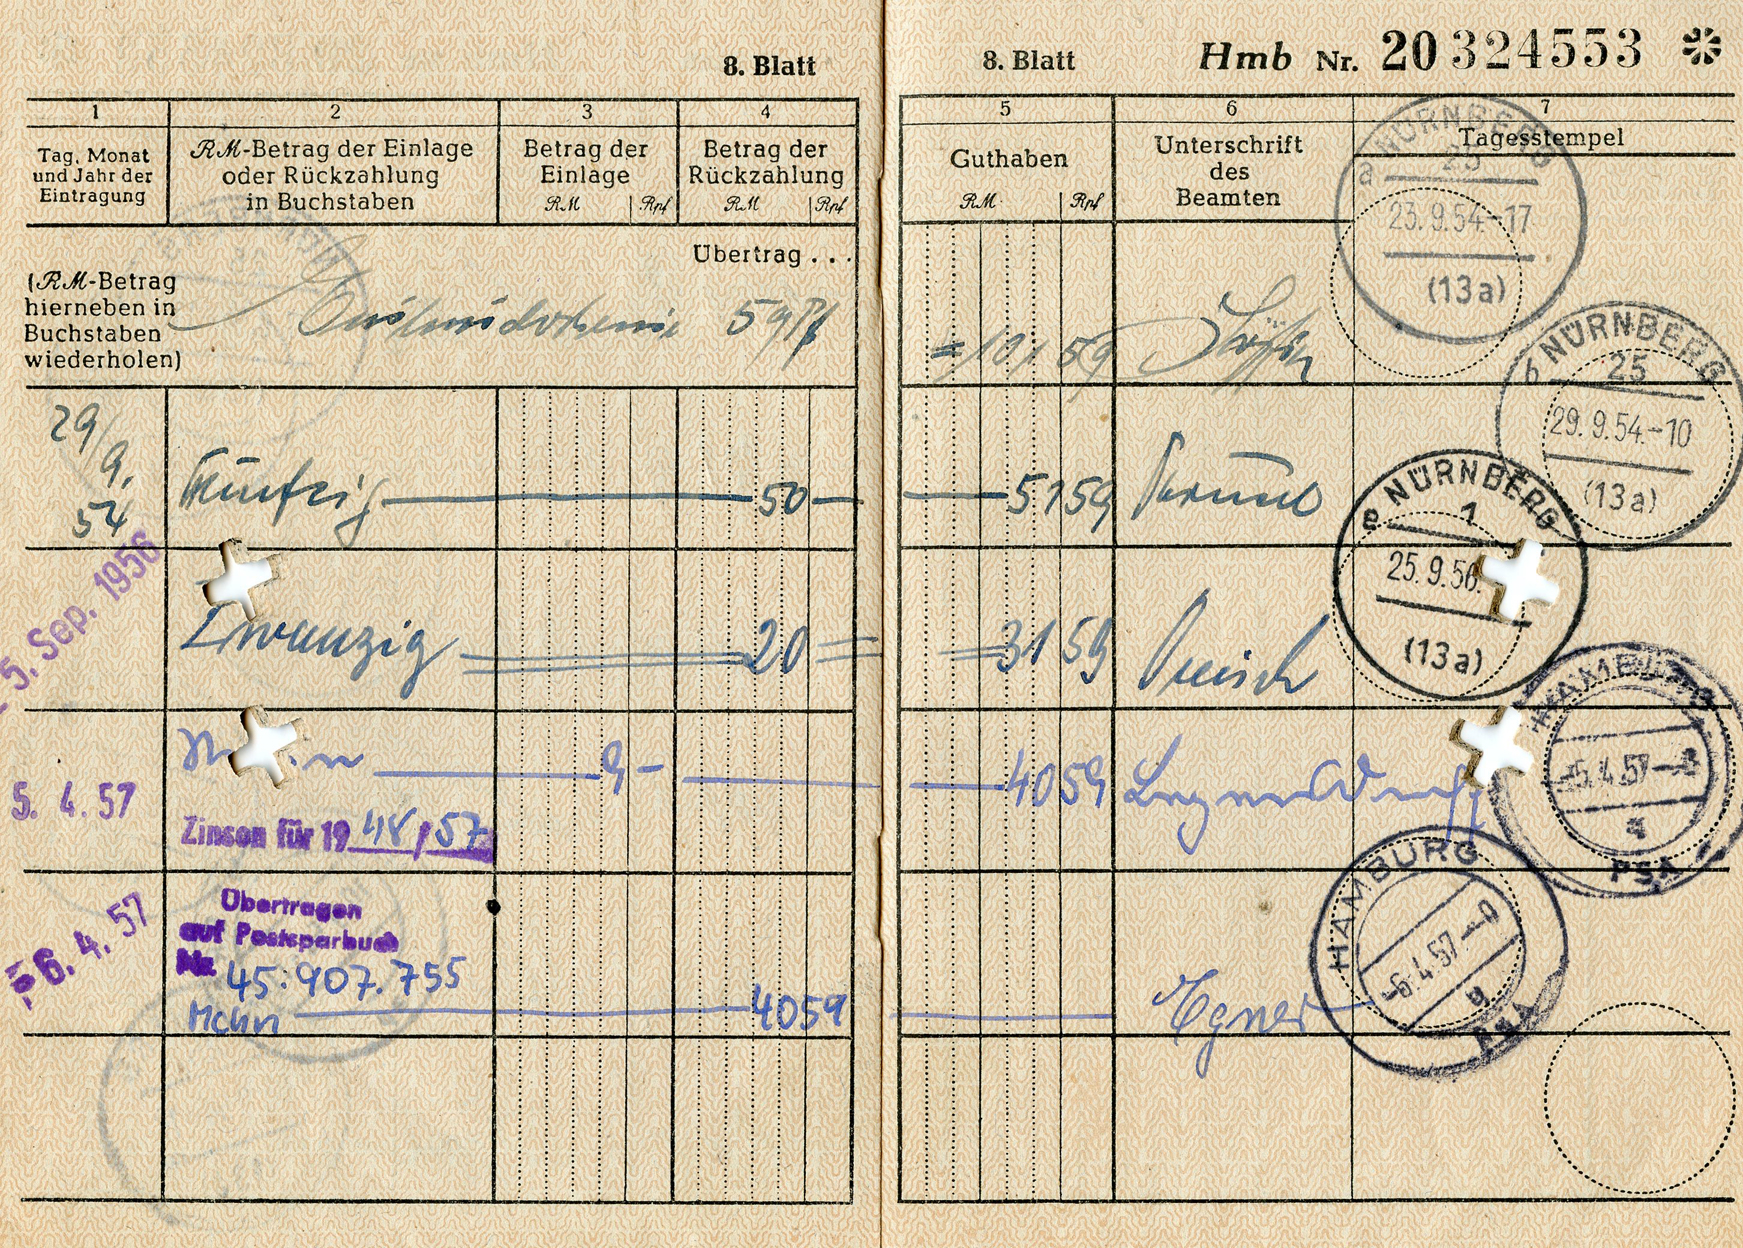 8. Blatt
1 2 3 4
Tag, Monat und Jahr der Eintragung
RM-Betrag der Einlage oder Rückzahlung in Buchstaben
Betrag der Einlage
RM Rpf
Betrag der Rückzahlung
RM Rpf
Übertrag . . .
(RM-Betrag
hierneben in
Buchstaben
wiederholen)
59 Pf
29/9. 54 Fünfzig 50
5. Sep. 1956 Zwanzig 20
5. 4. 57 9
Zinsen für 1948/57
-6. 4. 57
Übertragen
auf Postsparbuch
Nr. 45.907.755
4059
8. Blatt
Hmb Nr. 20324553
5 6 7
Guthaben
RM Rpf
Unterschrift des Beamten
Tagesstempel
= 101 59
51 59
31 59
40 59
Egner
NÜRNBERG
25
a
23.9.54.-17
(13a)
NÜRNBERG
b 25
29.9.54.-10
(13a)
NÜRNBERG
e 1
25.9.56.
(13a)
HAMBURG
-5.4.57
PSA
HAMBURG
-6.4.57-9
PSA